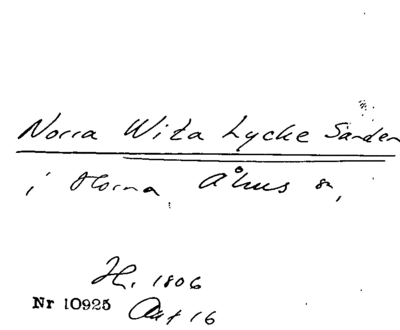 Norra Wita Lycke Sanden
i Horna Åhus sn,
H. 1806
Nr 10925 Akt 16